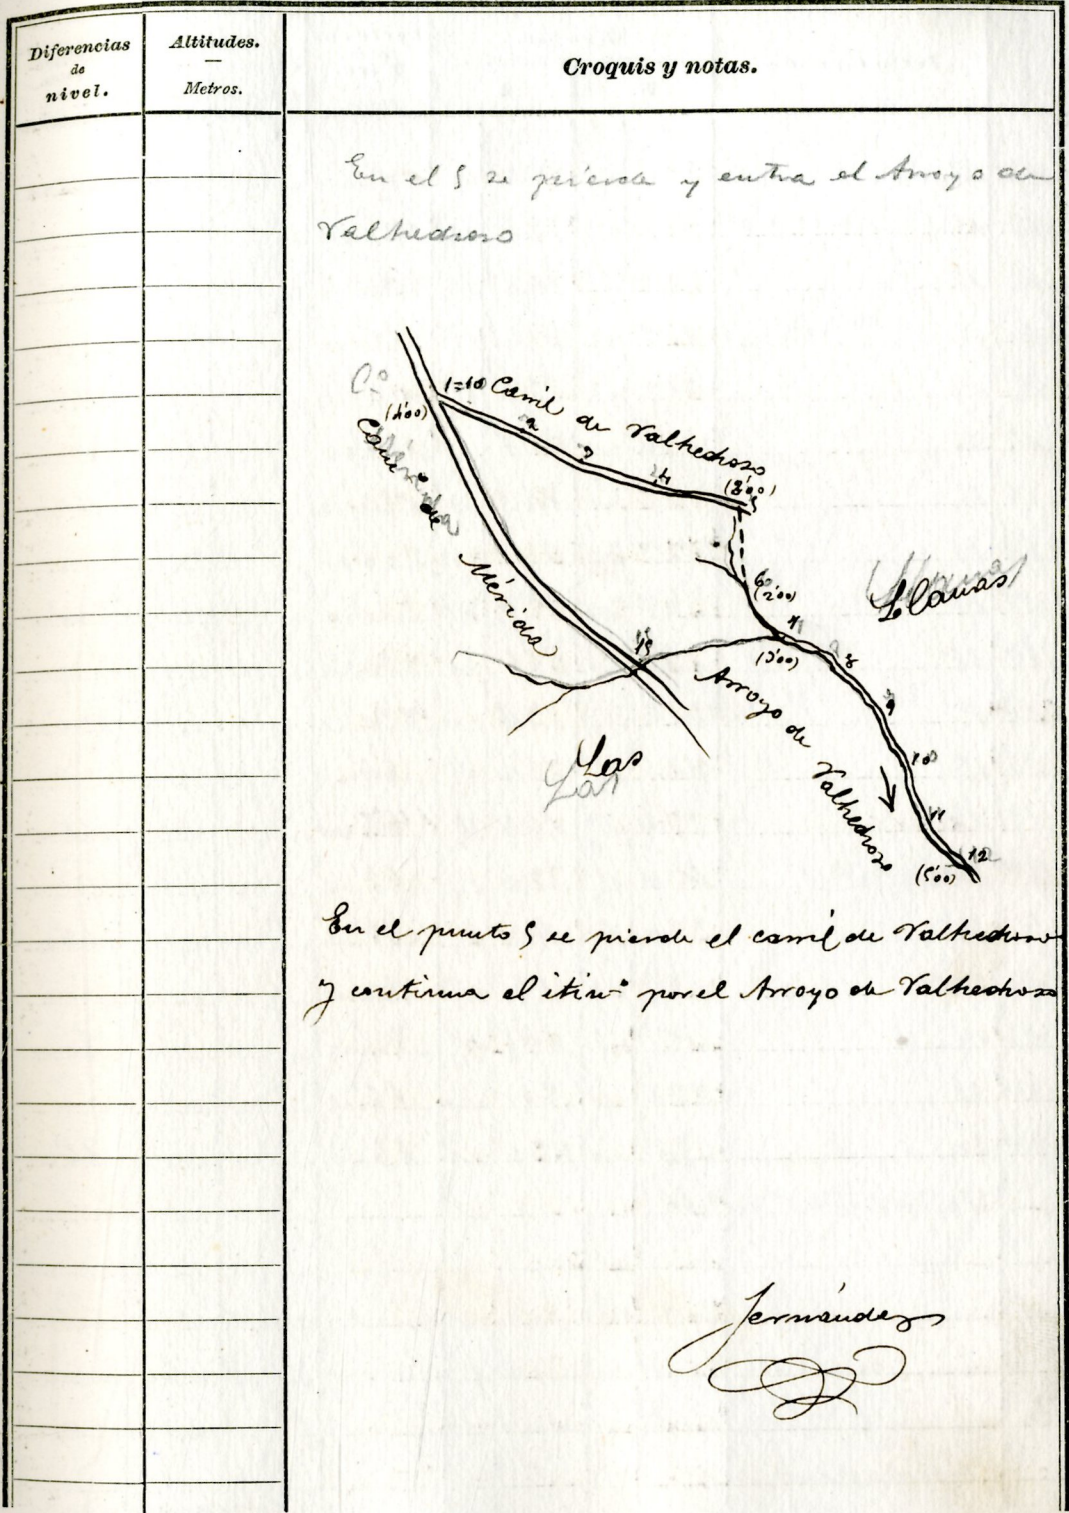 Diferencias
de
nivel.
Altitudes.
Metros.
Croquis y notas.
En el 5 se pierde y entra el Arroyo de
Valhedroso
Cº
1=10 Carril de Valhedroso
(4'00)
2
3
4
(3'00)
5
Camº de Mérida
6
(2'00)
Las Llanas
7
(3'00)
8
15
9
Arroyo de Valhedroso
10
11
12
(5'00)
En el punto 5 se pierde el carril de Valhedroso
y continua el itinº por el Arroyo de Valhedroso
Fernández